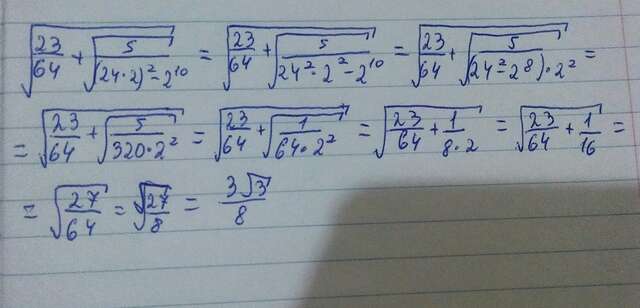 √(23/64 + √(5/((24·2)²-2¹⁰))) = √(23/64 + √(5/(24²·2²-2¹⁰))) = √(23/64 + √(5/((24²-2⁸)·2²))) =
= √(23/64 + √(5/(320·2²))) = √(23/64 + √(1/(64·2²))) = √(23/64 + 1/(8·2)) = √(23/64 + 1/16) =
= √(27/64) = √27/8 = 3√3/8